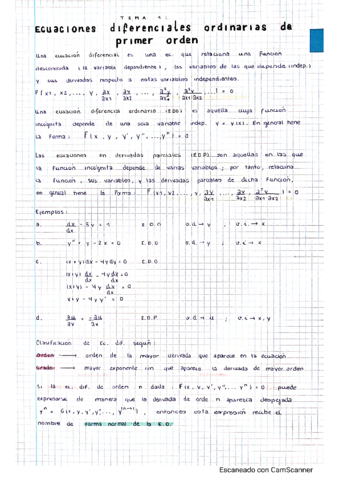 TEMA 1:
Ecuaciones diferenciales ordinarias de
primer orden
Una ecuación diferencial es una ec. que relaciona una función
desconocida (la variable dependiente), las variables de las que depende (indep.)
y sus derivadas respecto a estas variables independientes.
F(x1, x2, ..., y, ∂y/∂x1, ..., ∂²y/∂x1∂x2, ...) = 0
Una ecuación diferencial ordinaria (EDO) es aquella cuya función
incógnita depende de una sola variable indep. y = y(x). En general tiene
la forma: F(x, y, y', y'', ..., yⁿ) = 0
Las ecuaciones en derivadas parciales (E.D.P) son aquellas en las que
la función incógnita depende de varias variables; por tanto, relaciona
la función, sus variables, y las derivadas parciales de dicha función,
en general tiene la forma:
Ejemplos:
a. dx - 3y = 1 E.D.O v.d → y ; v.i → x
b. y'' + y - 2x = 0 E.D.O v.d → y ; v.i → x
c. (x+y)dx - 4y dy = 0 E.D.O
(x+y) dx/dx - 4y dy/dx = 0
x+y - 4y y' = 0
d. ∂u/∂y = -∂u/∂x E.D.P v.d → u ; v.i → x, y
Clasificación de Ec. dif. según:
Orden → orden de la mayor derivada que aparece en la ecuación
Grado → mayor exponente con que aparece la derivada de mayor orden
Si la ec. dif. de orden n dada: F(x, y, y', y'', ... yⁿ) = 0 puede
expresarse de manera que la derivada de orde n aparezca despejada
yⁿ = G(x, y, y', ..., y⁽ⁿ⁻¹⁾), entonces esta expresión recibe el
nombre de forma normal de la E.D.
Escaneado con CamScanner